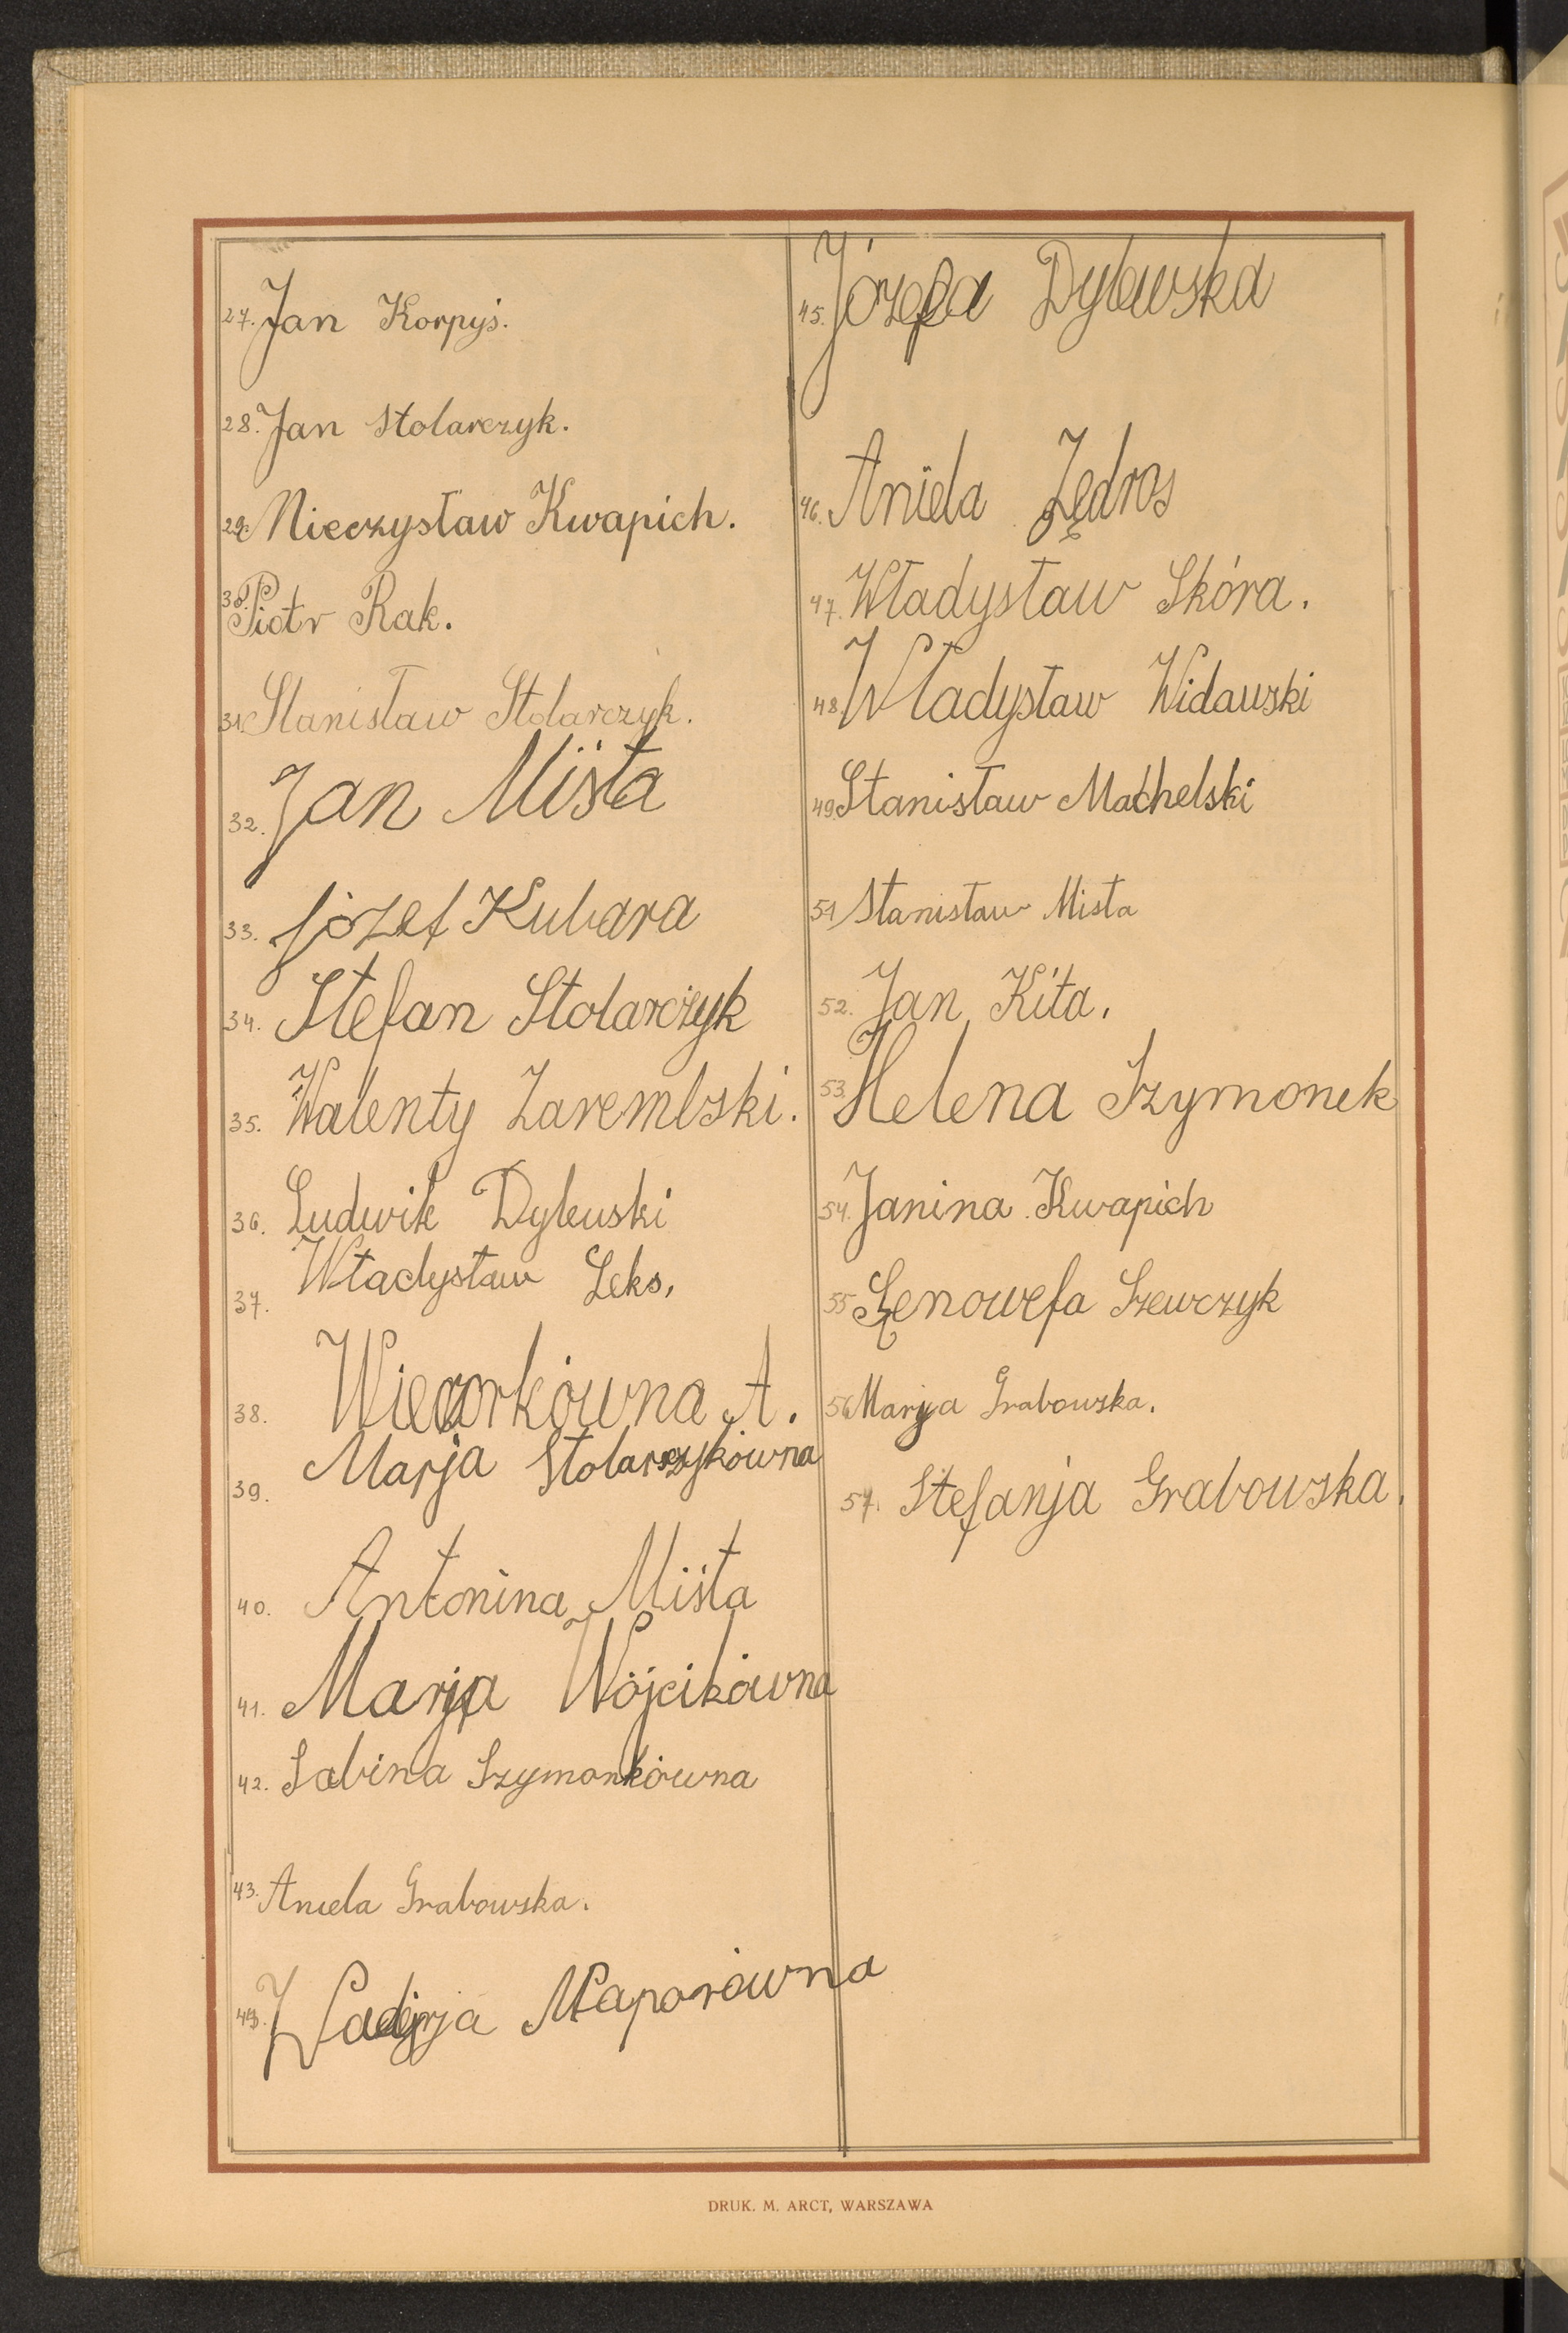 27. Jan Korpyś.
28. Jan Stolarczyk.
29. Mieczysław Kwapich.
30. Piotr Rak.
31. Stanisław Stolarczyk.
32. Jan Miśta
33. Józef Kubara
34. Stefan Stolarczyk
35. Walenty Zarembski.
36. Ludwik Dylewski
37. Władysław Leks.
38. Wieczorkówna A.
39. Marja Stolarczykówna
40. Antonina Miśta
41. Marja Wójcikówna
42. Sabina Szymonkówna
43. Aniela Grabowska.
44. Władzja Młaporówna
45. Józefa Dylewska
46. Aniela Jędros
47. Władysław Skóra.
48. Władysław Widawski
49. Stanisław Machelski
51 Stanisław Mista
52. Jan Kita.
53. Helena Szymonek
54. Janina Kwapich
55 Genowefa Szewczyk
56 Marja Grabowska.
57. Stefanja Grabowska.
DRUK. M. ARCT, WARSZAWA